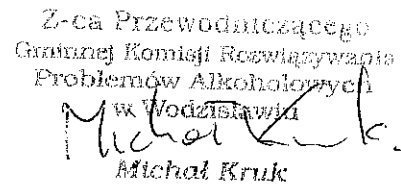 Z-ca Przewodniczącego
Gminnej Komisji Rozwiązywania
Problemów Alkoholowych
w Wodzisławiu
Michał Kruk.
Michał Kruk